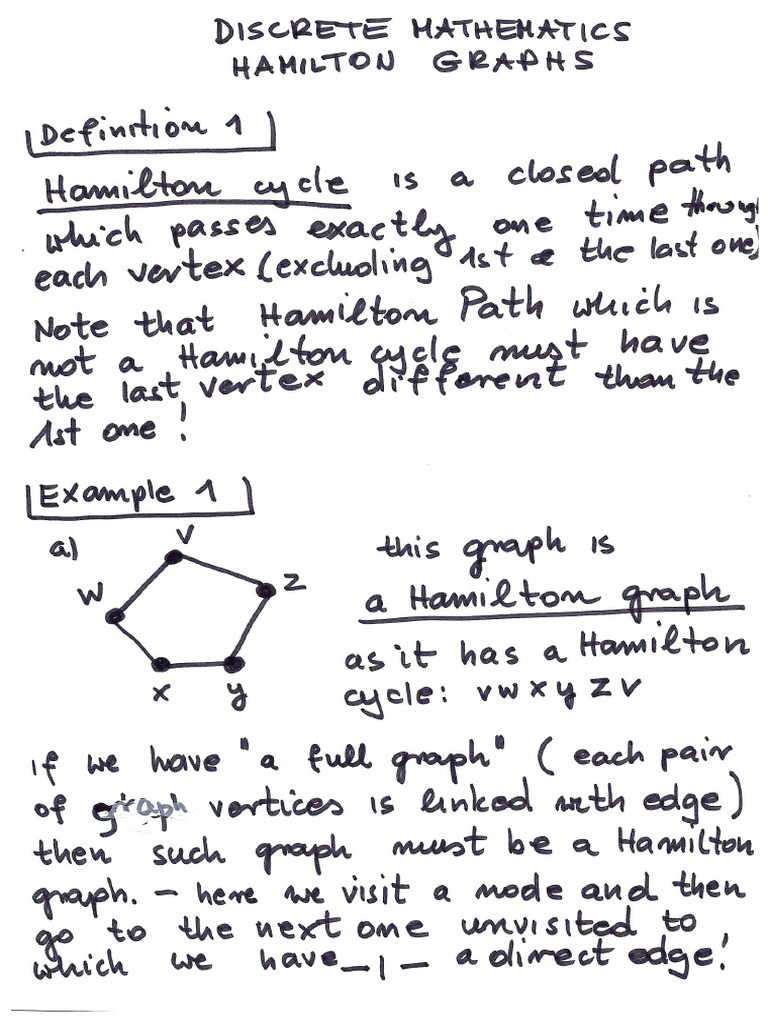 DISCRETE MATHEMATICS
HAMILTON GRAPHS
Definition 1
Hamilton cycle is a closed path
which passes exactly one time through
each vertex (excluding 1st & the last one)
Note that Hamilton Path which is
not a Hamilton cycle must have
the last vertex different than the
1st one!
Example 1
a)
V
W
Z
x
y
this graph is
a Hamilton graph
as it has a Hamilton
cycle: v w x y z v
if we have "a full graph" (each pair
of graph vertices is linked with edge)
then such graph must be a Hamilton
graph. – here we visit a node and then
go to the next one unvisited to
which we have _ | _ a direct edge!